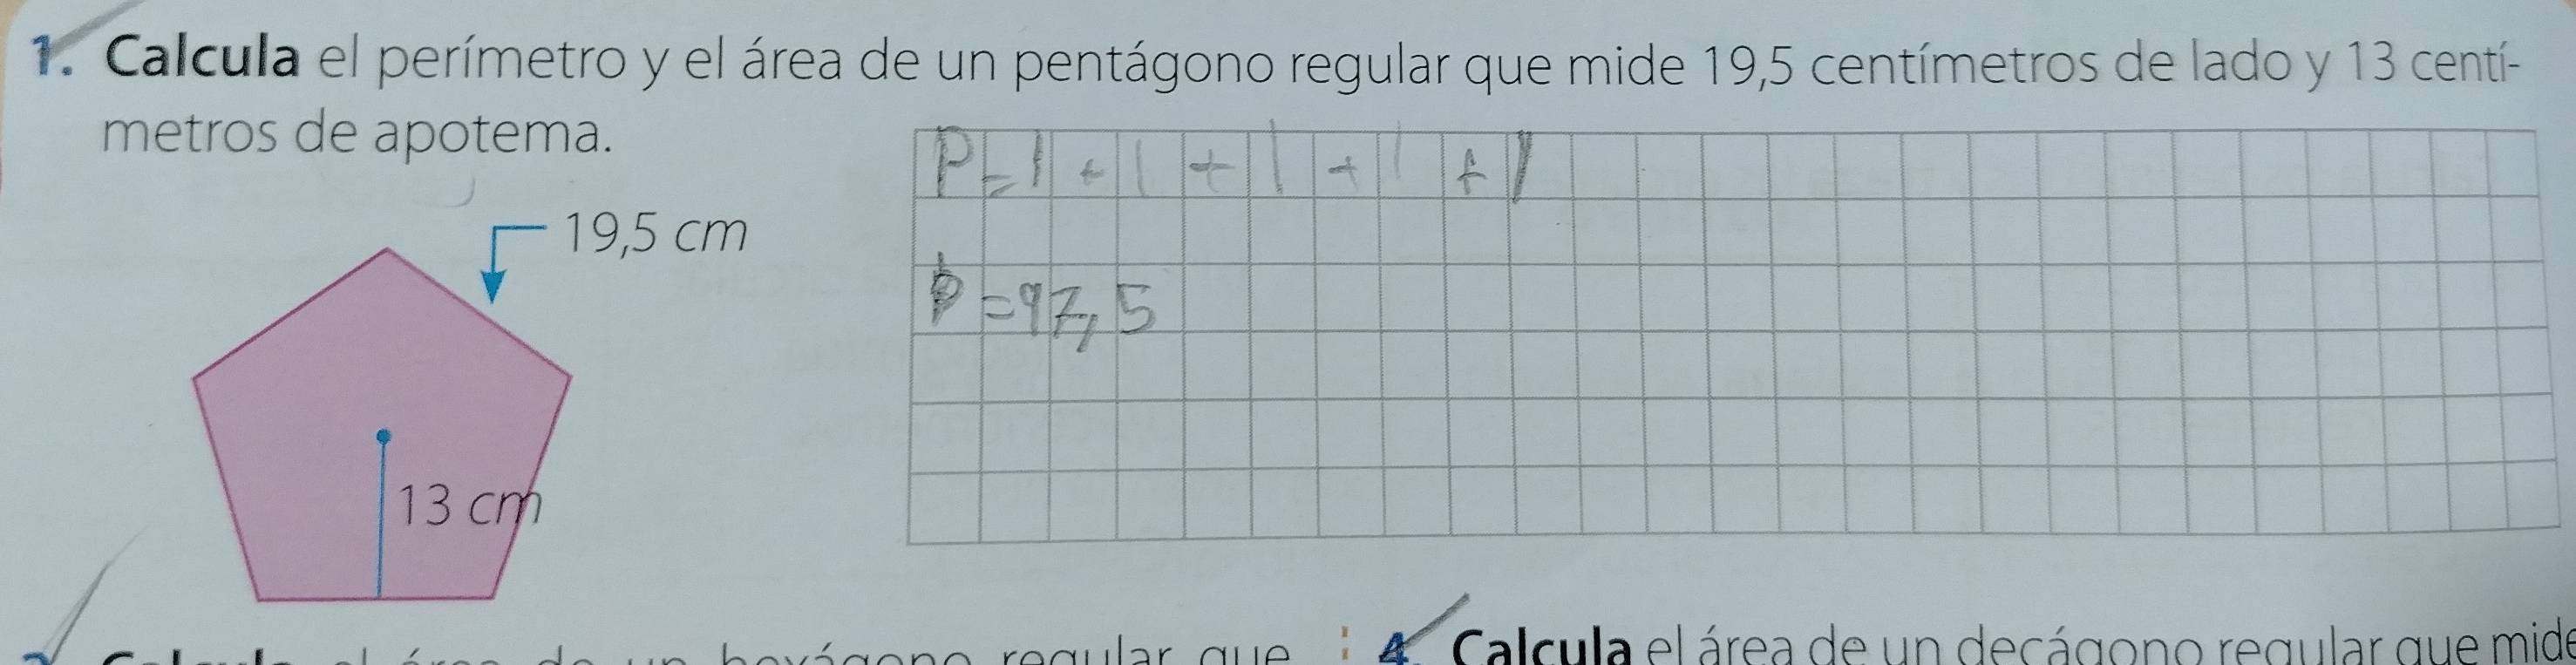 1. Calcula el perímetro y el área de un pentágono regular que mide 19,5 centímetros de lado y 13 centí-
metros de apotema.
P=l+l+l+l+l
19,5 cm
P=97,5
13 cm
el área de un hexágono regular que
4. Calcula el área de un decágono regular que mide